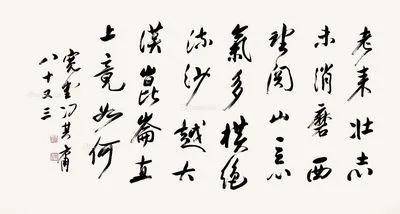 老来壮志
未消磨西
望关山意
气多横绝
流沙越大
漠昆仑直
上竟如何
宽堂冯其庸
八十又三